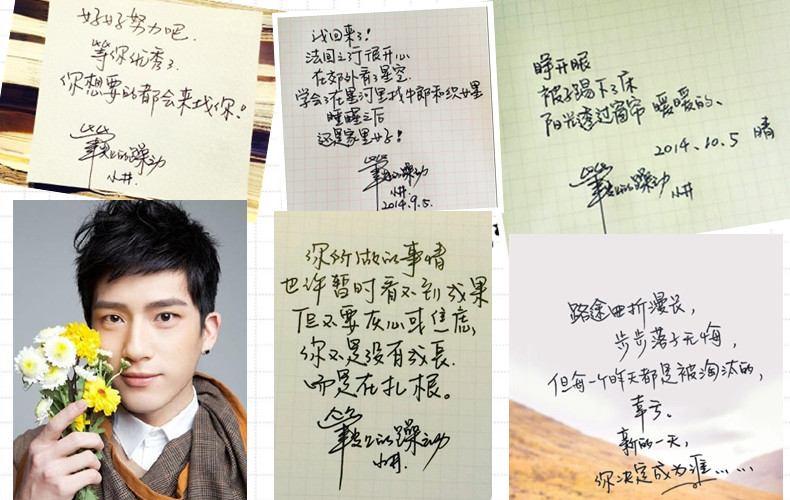 好好努力吧.
等你优秀了.
你想要的都会来找你!
笔尖上的躁动
小井.
我回来了!
法国之行很开心
在郊外看了星空.
学会了在星河里找牛郎和织女星
睡睡之后
还是家里好!
笔尖上的躁动
小井.
2014.9.5.
睁开眼
被子踢下了床
阳光透过窗帘 暖暖的、
2014.10.5 晴
笔尖上的躁动
小井
你所做的事情
也许暂时看不到成果
但不要灰心或焦虑,
你不是没有成長.
而是在扎根。
笔尖上的躁动
小井.
路途曲折漫长,
步步落子无悔,
但每一个昨天都是被淘汰的,
幸亏、
新的一天,
你决定成为谁......